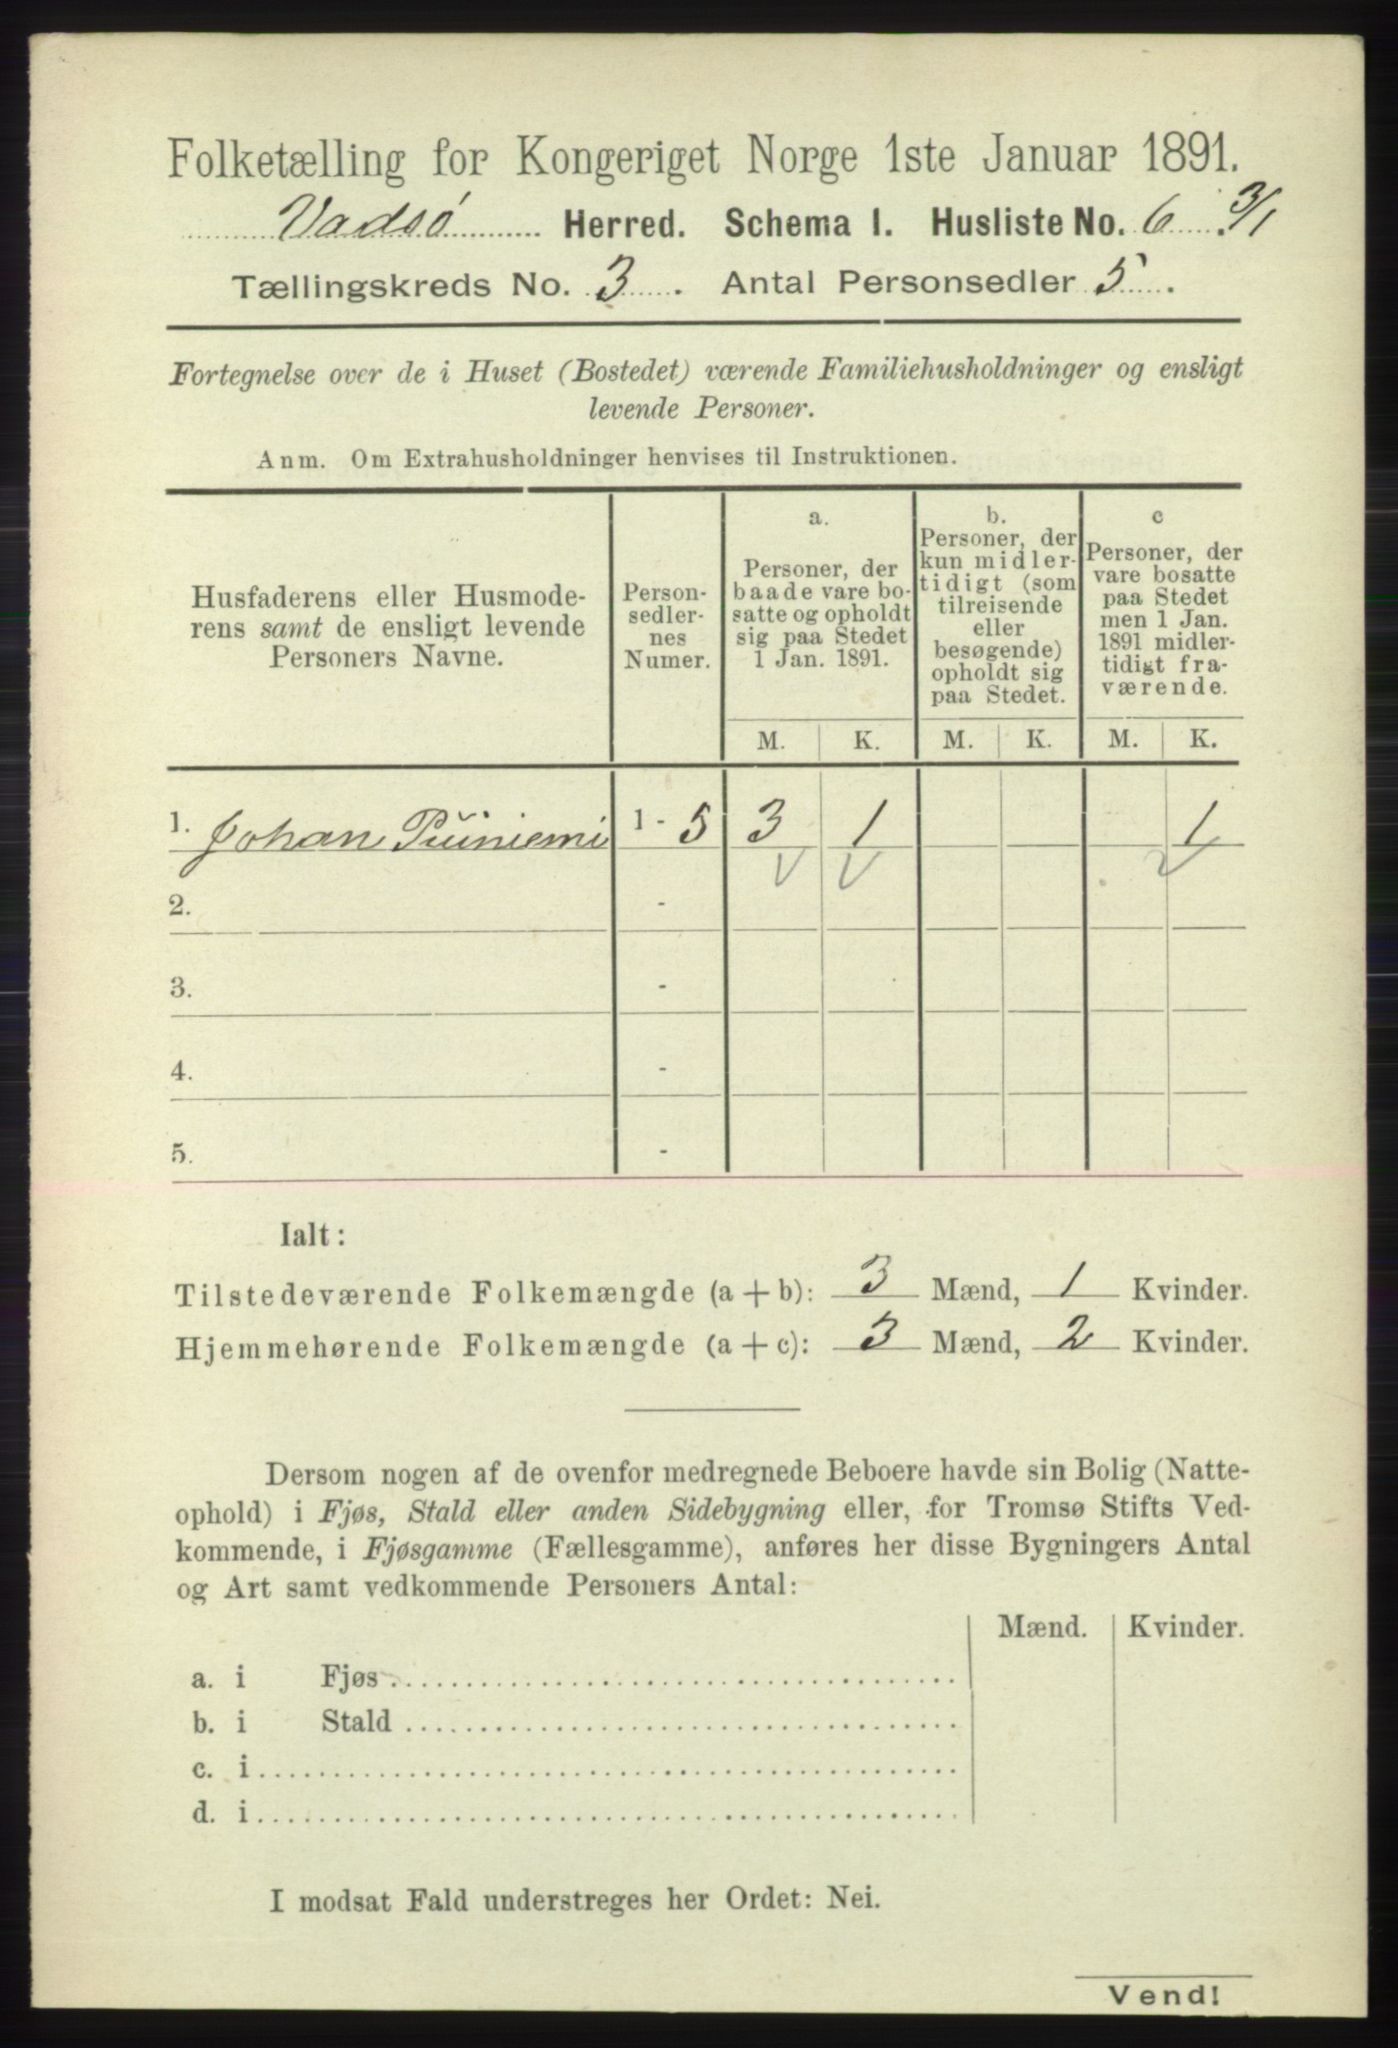 Folketælling for Kongeriget Norge 1ste Januar 1891.
Vadsø Herred. Schema I. Husliste No. 6. 3/1
Tællingskreds No. 3. Antal Personsedler 5.
Fortegnelse over de i Huset (Bostedet) værende Familiehusholdninger og ensligt
levende Personer.
Anm. Om Extrahusholdninger henvises til Instruktionen.
Husfaderens eller Husmode-
rens samt de ensligt levende
Personers Navne.
Person-
sedler-
nes
Numer.
a.
Personer, der
baade vare bo-
satte og opholdt
sig paa Stedet
1 Jan. 1891.
b.
Personer, der
kun midler-
tidigt (som
tilreisende
eller
besøgende)
opholdt sig
paa Stedet.
c
Personer, der
vare bosatte
paa Stedet
men 1 Jan.
1891 midler-
tidigt fra-
værende.
M. K. M. K. M. K.
1. Johan Püiniemi 1 - 5 3 1 1
2. -
3. -
4. -
5. -
Ialt:
Tilstedeværende Folkemængde (a + b): 3 Mænd, 1 Kvinder.
Hjemmehørende Folkemængde (a + c): 3 Mænd, 2 Kvinder.
Dersom nogen af de ovenfor medregnede Beboere havde sin Bolig (Natte-
ophold) i Fjøs, Stald eller anden Sidebygning eller, for Tromsø Stifts Ved-
kommende, i Fjøsgamme (Fællesgamme), anføres her disse Bygningers Antal
og Art samt vedkommende Personers Antal:
Mænd. Kvinder.
a. i Fjøs
b. i Stald
c. i
d. i
I modsat Fald understreges her Ordet: Nei.
Vend!